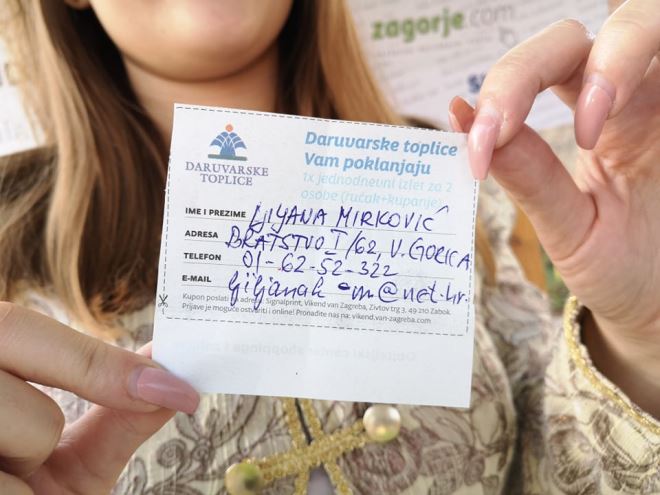 zagorje.com
DARUVARSKE
TOPLICE
Daruvarske toplice
Vam poklanjaju
1x jednodnevni izlet za 2
osobe (ručak+kupanje)
IME I PREZIME LJILJANA MIRKOVIĆ
ADRESA BRATSTVO I/62, V. GORICA
TELEFON 01-62-52-322
E-MAIL ljiljanah-m@net.hr
Kupon poslati na adresu: Signalprint, Vikend van Zagreba, Zivtov trg 3, 49 210 Zabok.
Prijave je moguće ostvariti i online! Pronađite nas na: vikend.van-zagreba.com